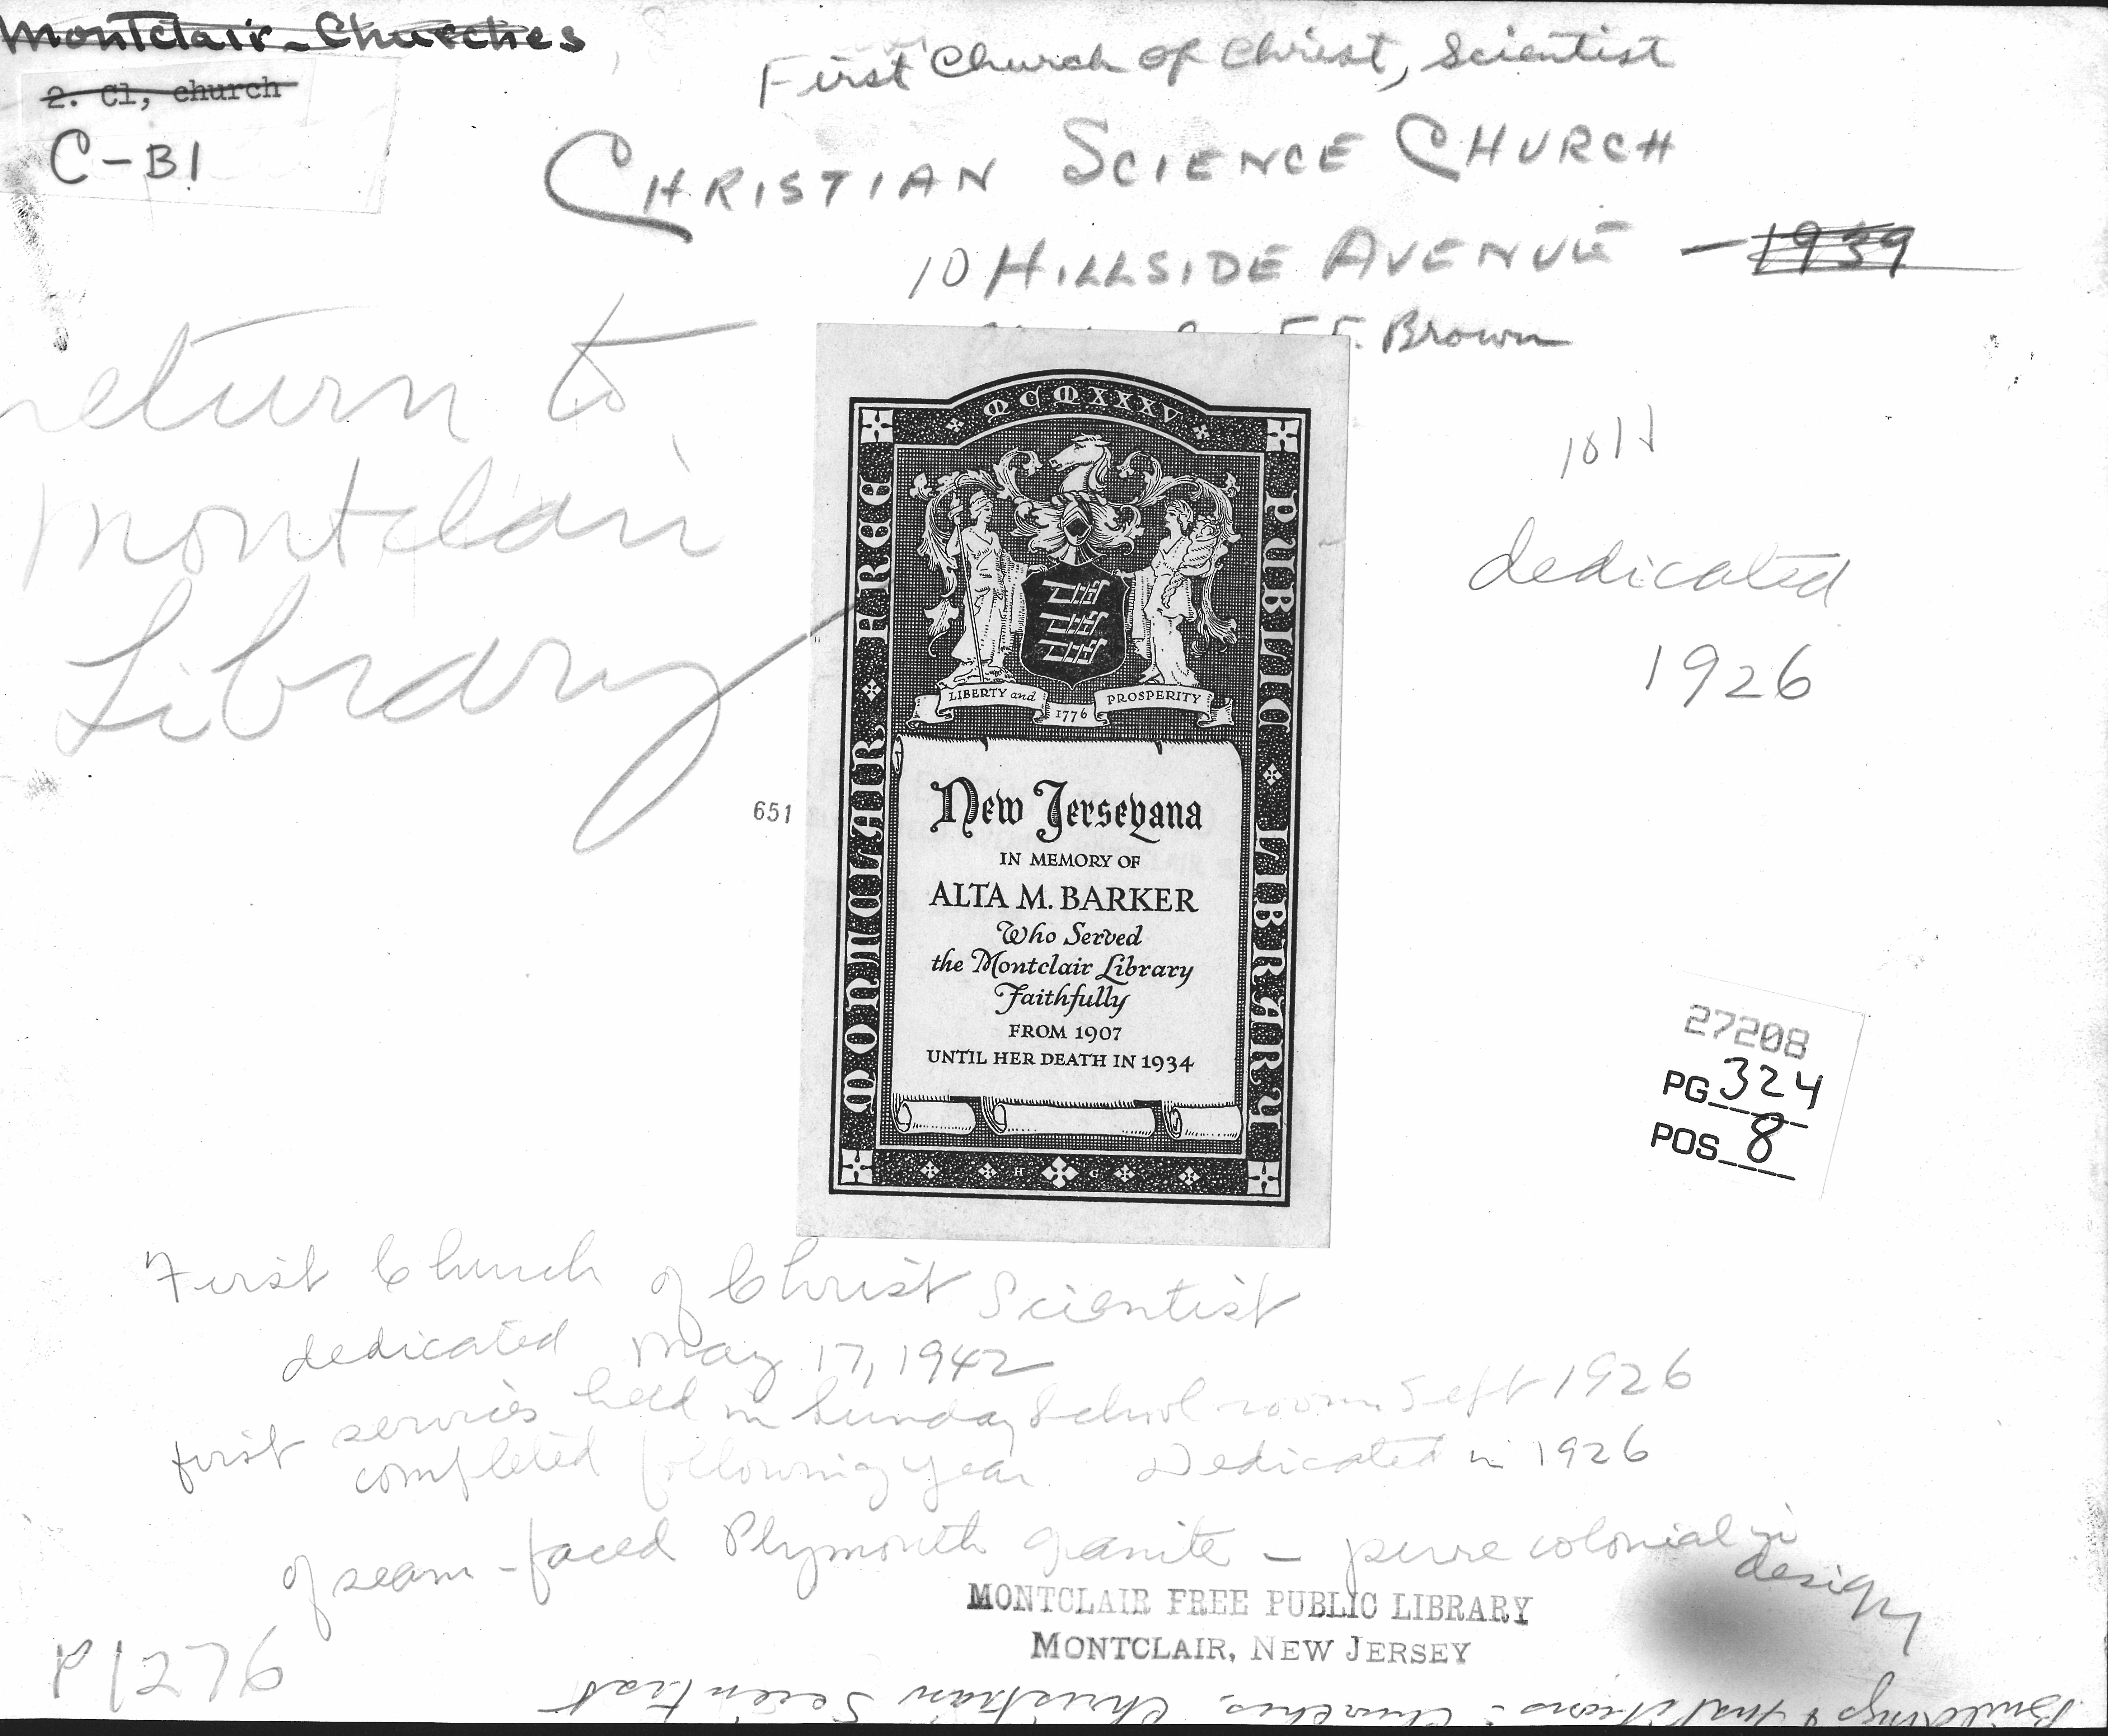 Montclair-Churches
2. Cl, church
C-B1
First Church of Christ, Scientist
CHRISTIAN SCIENCE CHURCH
10 HILLSIDE AVENUE - 1939
F. Brown
return to
Montclair
Library
dedicated
1926
651
MCMXXXV
MONTCLAIR FREE
PUBLIC LIBRARY
LIBERTY and
1776
PROSPERITY
New Jerseyana
IN MEMORY OF
ALTA M. BARKER
Who Served
the Montclair Library
Faithfully
FROM 1907
UNTIL HER DEATH IN 1934
H G
27208
PG 324
POS 8
First Church of Christ Scientist
dedicated May 17, 1942
first services held in Sunday School room Sept 1926
completed following year Dedicated in 1926
of seam-faced Plymouth granite - pure colonial in
design
MONTCLAIR FREE PUBLIC LIBRARY
MONTCLAIR, NEW JERSEY
P1276
Buildings & Institutions: Churches, Christian Scientist